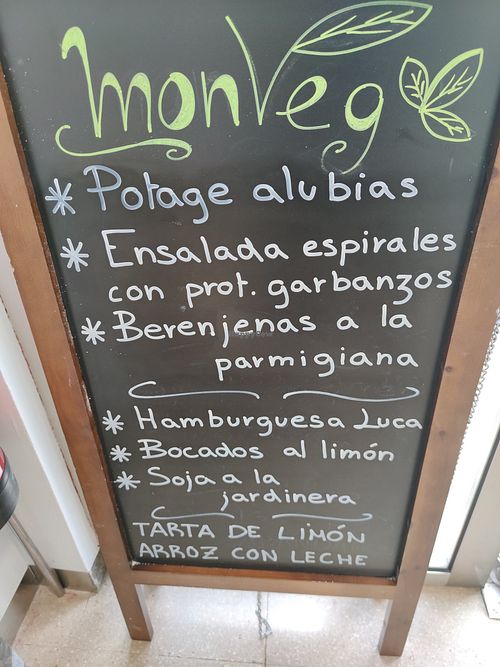 monVeg
* Potage alubias
* Ensalada espirales
con prot. garbanzos
* Berenjenas a la
parmigiana
* Hamburguesa Luca
* Bocados al limón
* Soja a la
jardinera
TARTA DE LIMÓN
ARROZ CON LECHE